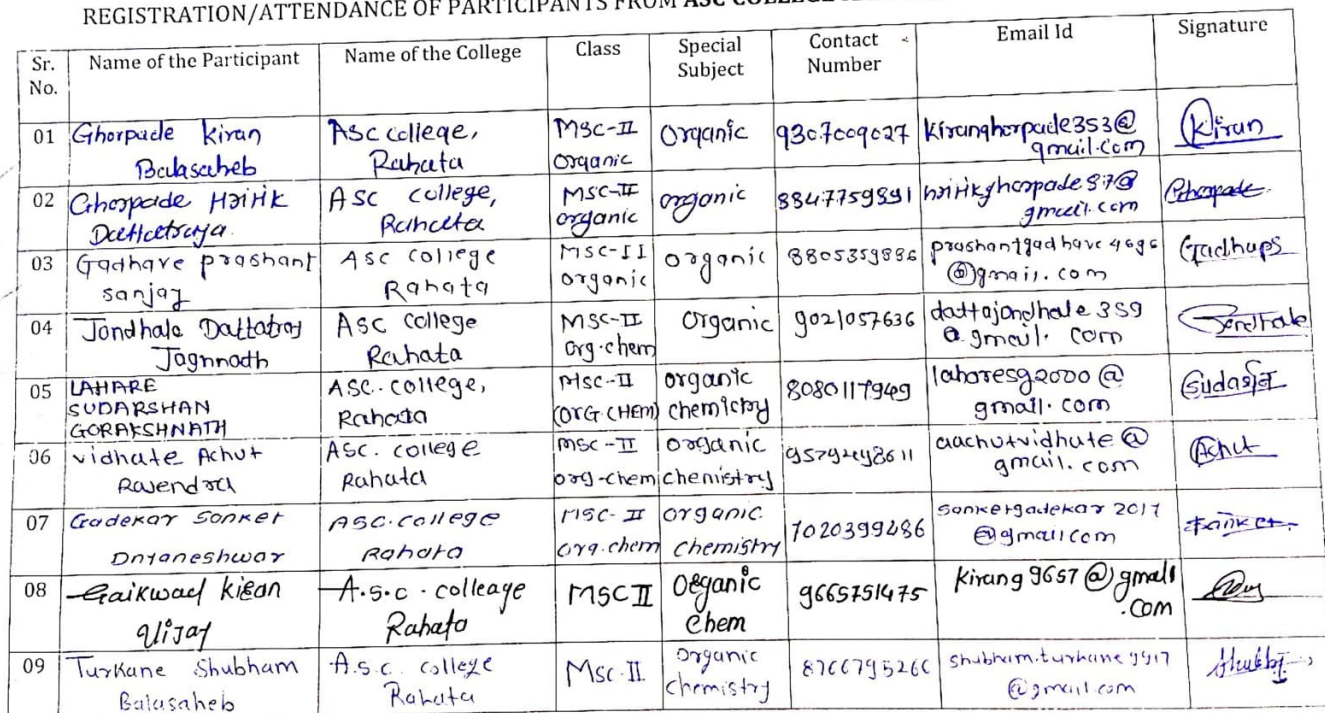 REGISTRATION/ATTENDANCE OF PARTICIPANTS FROM ASC COLLEGE
Sr. No. Name of the Participant Name of the College Class Special Subject Contact Number Email Id Signature
01 Ghorpade Kiran Balasaheb Asc college, Rahata MSC-II Organic Organic 9307009027 Kiranghorpade353@gmail.com Kiran
02 Ghorpade Hritik Dattatraya Asc college, Rahata MSC-II organic organic 8847759891 hritikghorpade87@gmail.com Ghorpade
03 Gadhave prashant sanjay Asc college Rahata MSC-II organic organic 8805359886 prashantgadhave4696@gmail.com Gadhaps
04 Jondhale Dattatray Jagnnath Asc College Rahata MSC-II org.chem Organic 9021057636 dattajondhale359@gmail.com Jondhale
05 LAHARE SUDARSHAN GORAKSHNATH Asc. college, Rahata MSC-II (ORG.CHEM) organic chemistry 8080117949 laharesg2000@gmail.com
06 vidhate Achut Rajendra Asc. college Rahata MSC-II org-chem organic chemistry 9579248611 aachutvidhate@gmail.com Achut
07 Gadekar Sanket Dnyaneshwar Asc.college Rahata MSC-II org.chem organic chemistry 7020399286 sanketgadekar2017@gmail.com Sanket
08 Gaikwad kiran Vijay A.s.c. colleage Rahata MSC II Organic Chem 9665751475 kirang9657@gmail.com
09 Turkane Shubham Balasaheb A.s.c. college Rahata Msc.II. Organic chemistry 8766795266 shubham.turkane9917@gmail.com